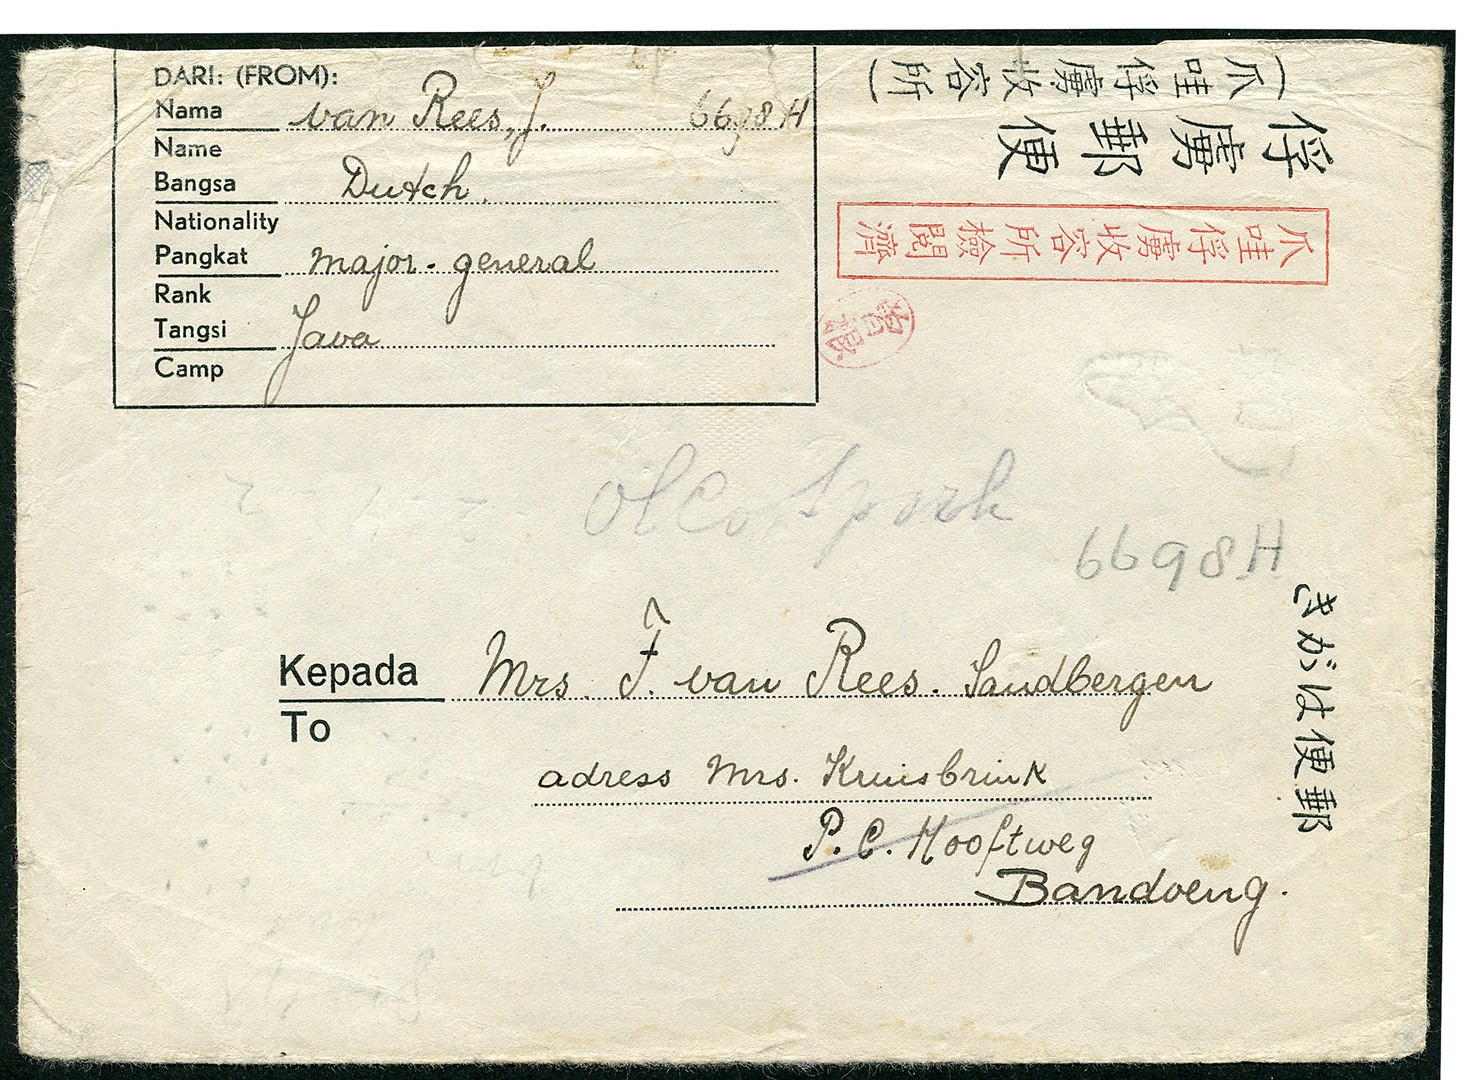 DARI: (FROM):
Nama
Name
van Rees, J. 6698H
Bangsa
Nationality
Dutch.
Pangkat
Rank
major-general
Tangsi
Camp
Java
(爪哇俘虜收容所)
俘虜郵便
爪哇俘虜收容所檢閱濟
6698H
Kepada
To
Mrs. F. van Rees. Sandbergen
adress Mrs. Kruisbrink
P.C. Hooftweg
Bandoeng.
郵便はがき